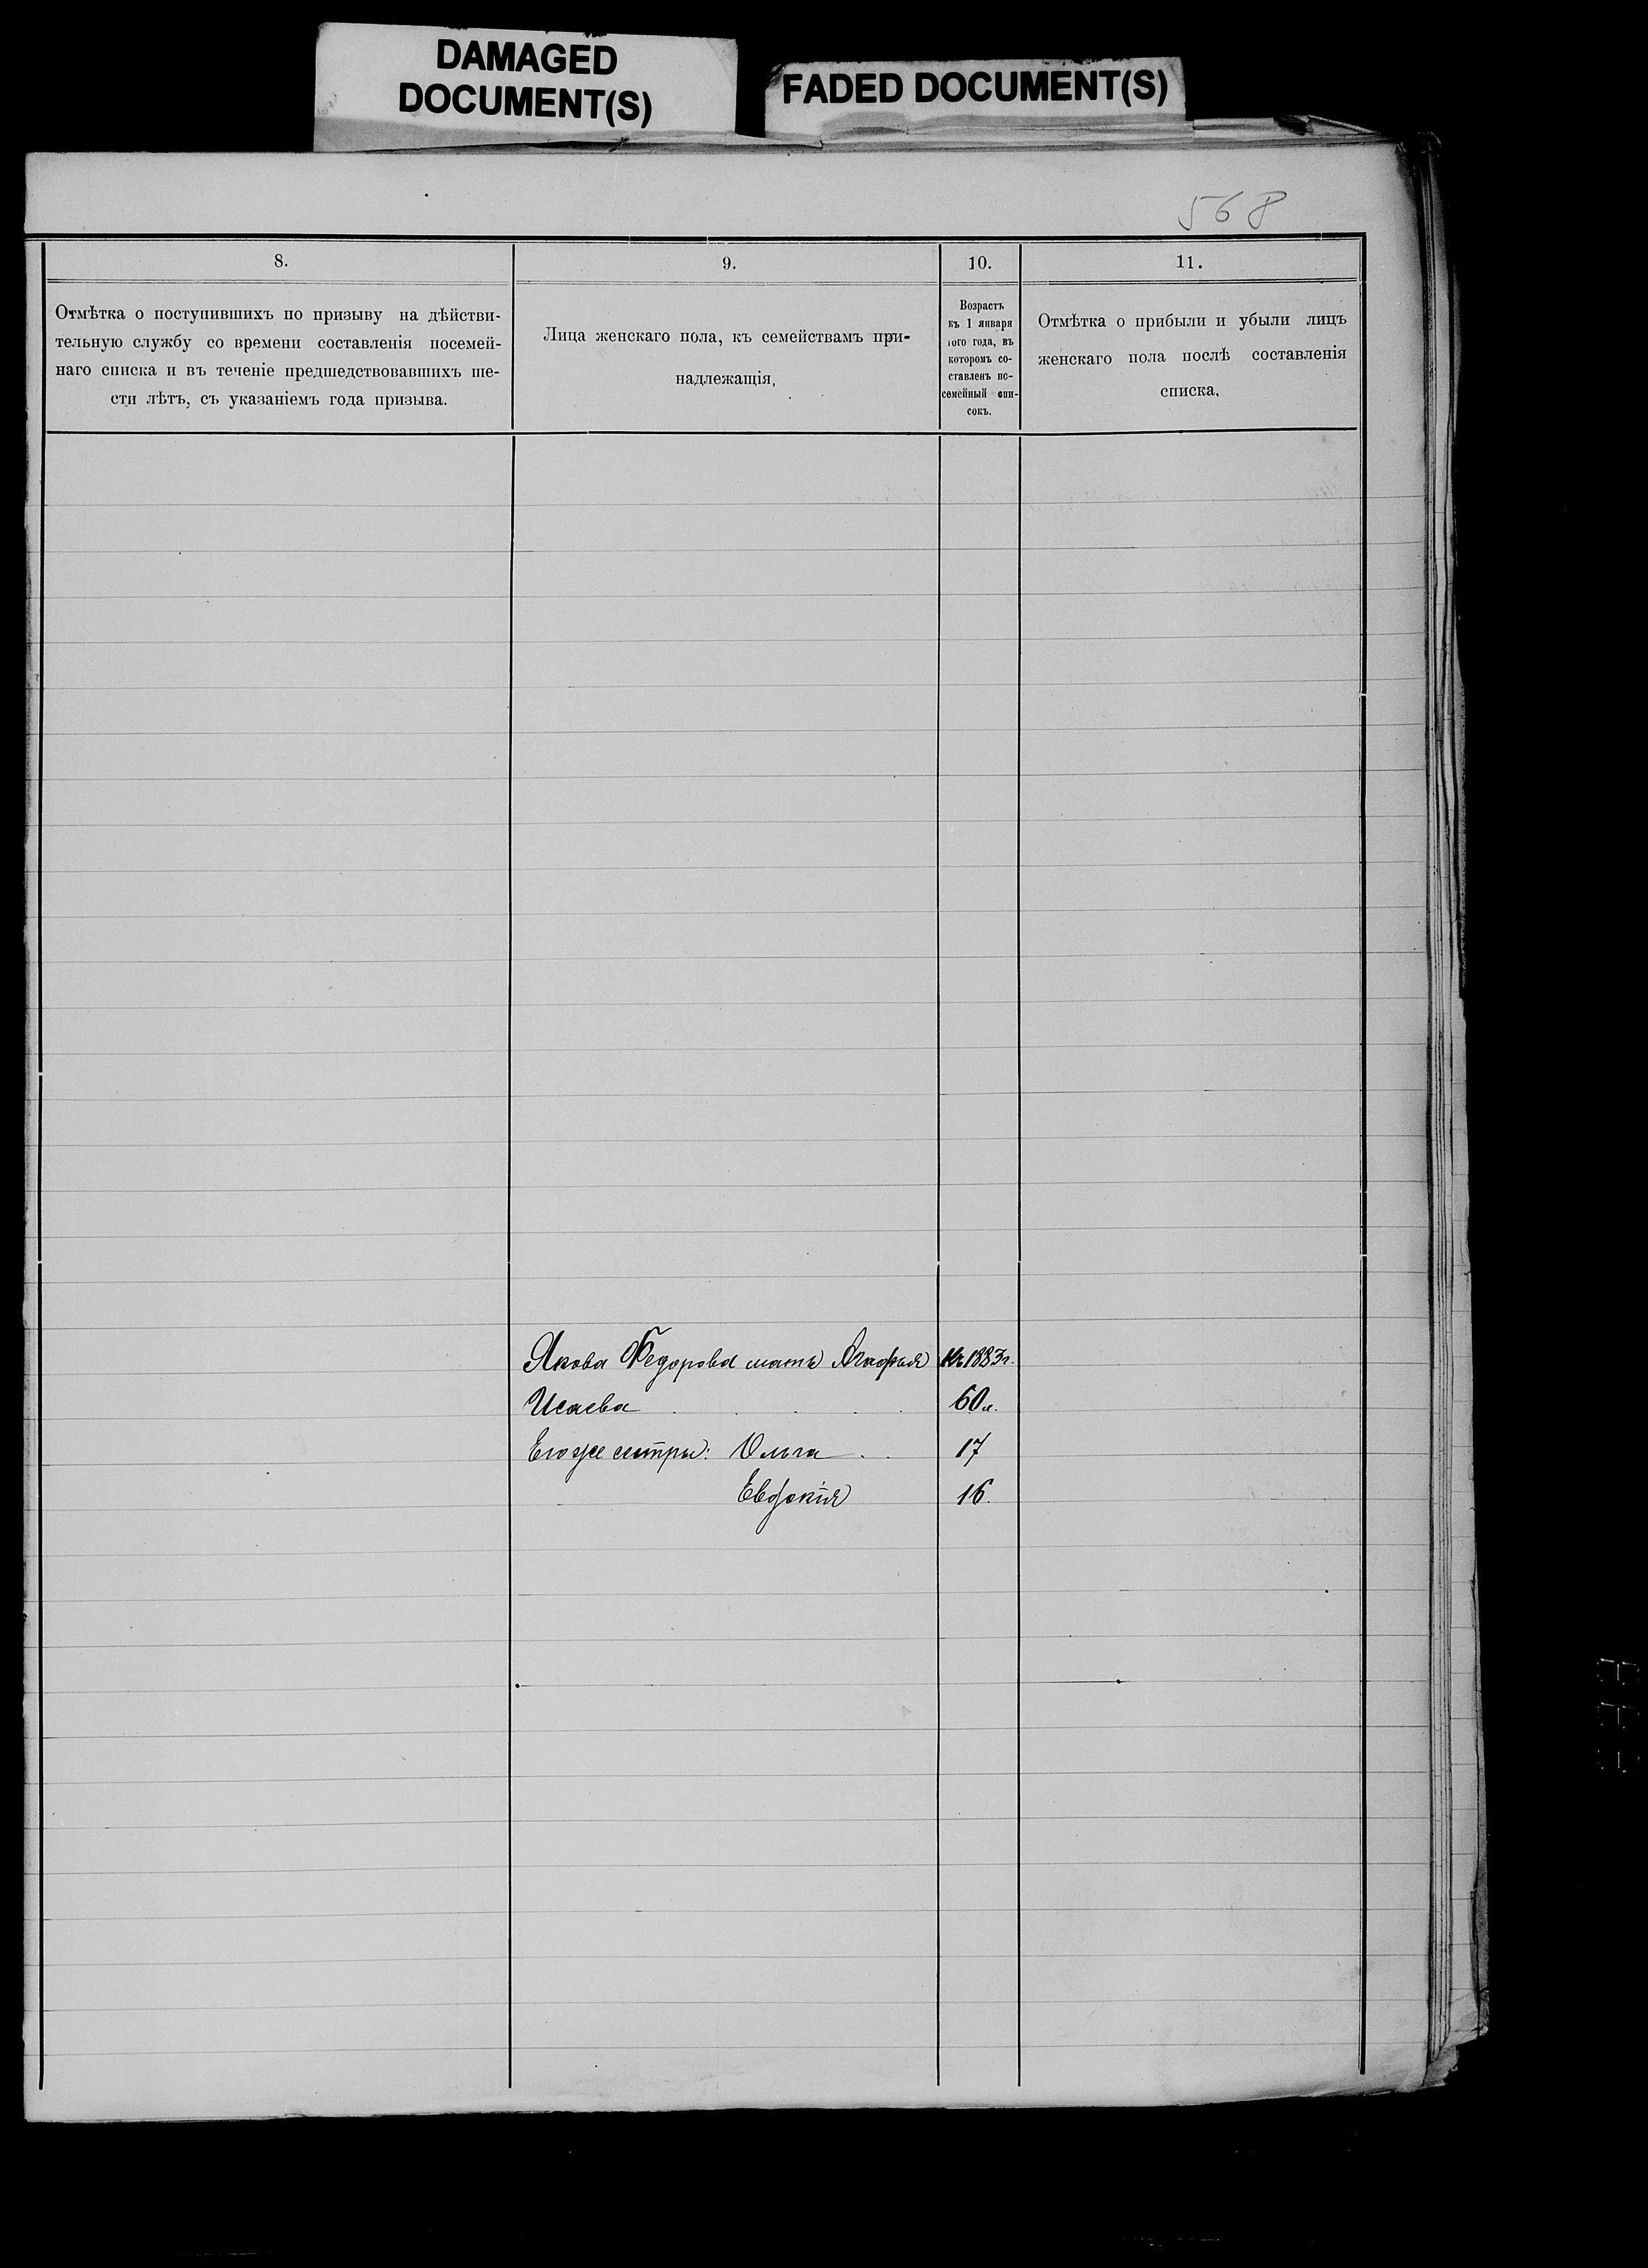 DAMAGED
DOCUMENT(S)
FADED DOCUMENT(S)
568
8.
Отмѣтка о поступившихъ по призыву на дѣйстви-
тельную службу со времени составленія посемей-
наго списка и въ теченіе предшедствовавшихъ ше-
сти лѣтъ, съ указаніемъ года призыва.
9.
Лица женскаго пола, къ семействамъ при-
надлежащія,
10.
Возрастъ
къ 1 января
того года, въ
которомъ со-
ставленъ по-
семейный спи-
сокъ.
11.
Отмѣтка о прибыли и убыли лицъ
женскаго пола послѣ составленія
списка,
Якова Федорова мать Агафья Къ 1883 г.
Исаева 60 л.
Его же сестры: Ольга 17
Евдокія 16.